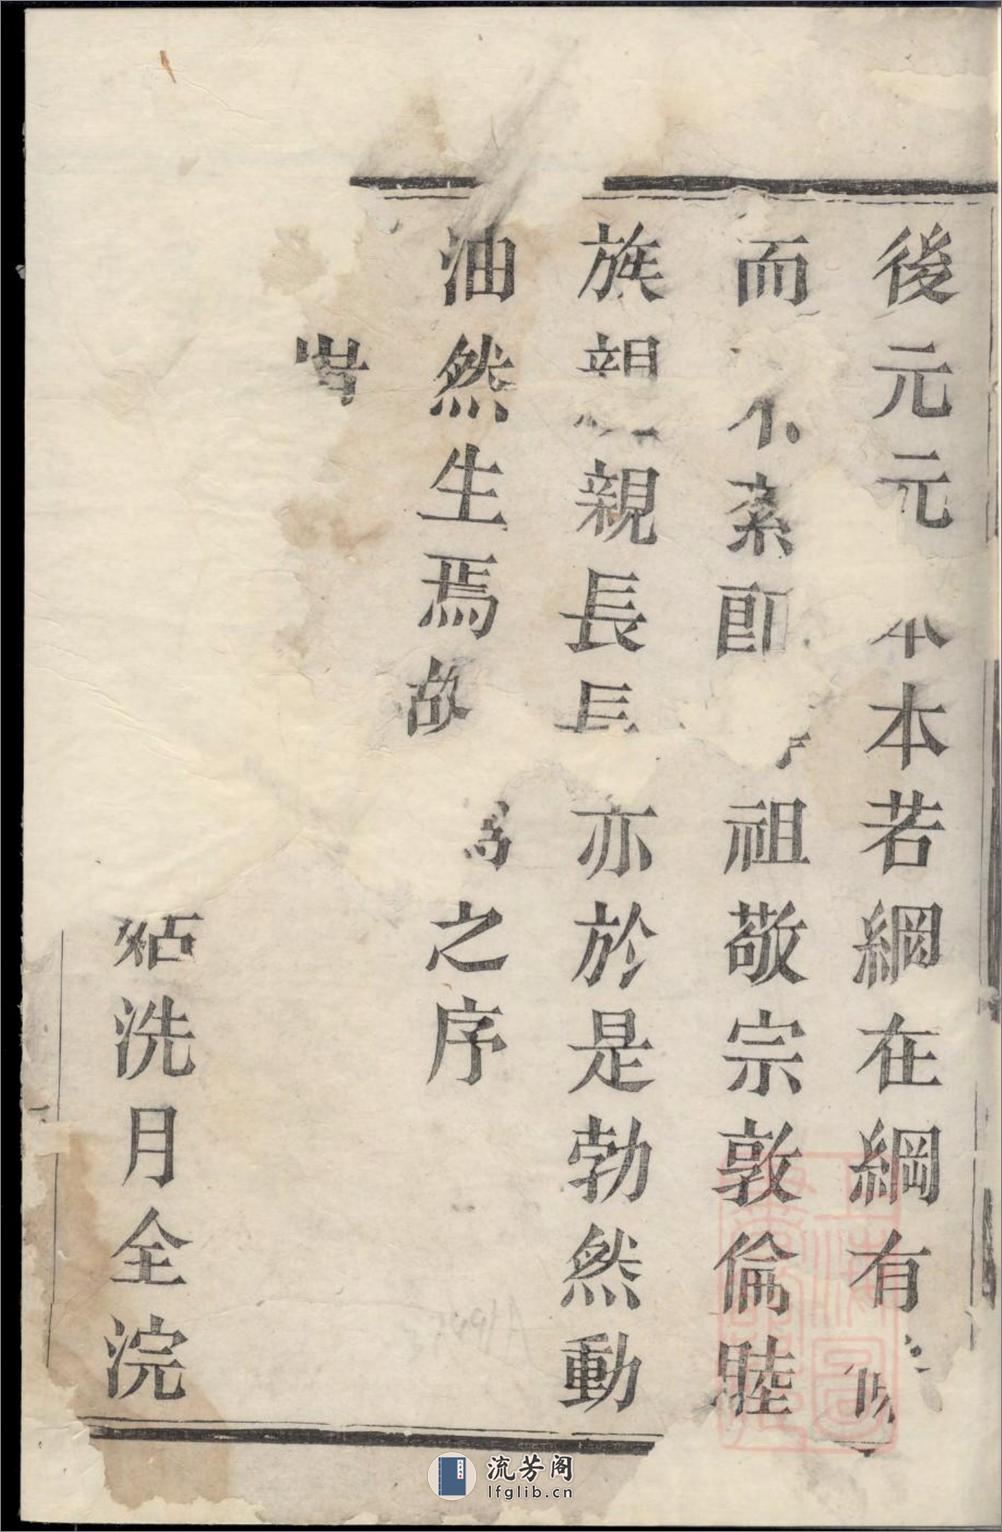 後元元本本若綱在綱有
而不紊即祖敬宗敦倫睦
族親親長長亦於是勃然動
油然生焉故為之序
峕
姑洗月全浣
流芳阁
lfglib.cn